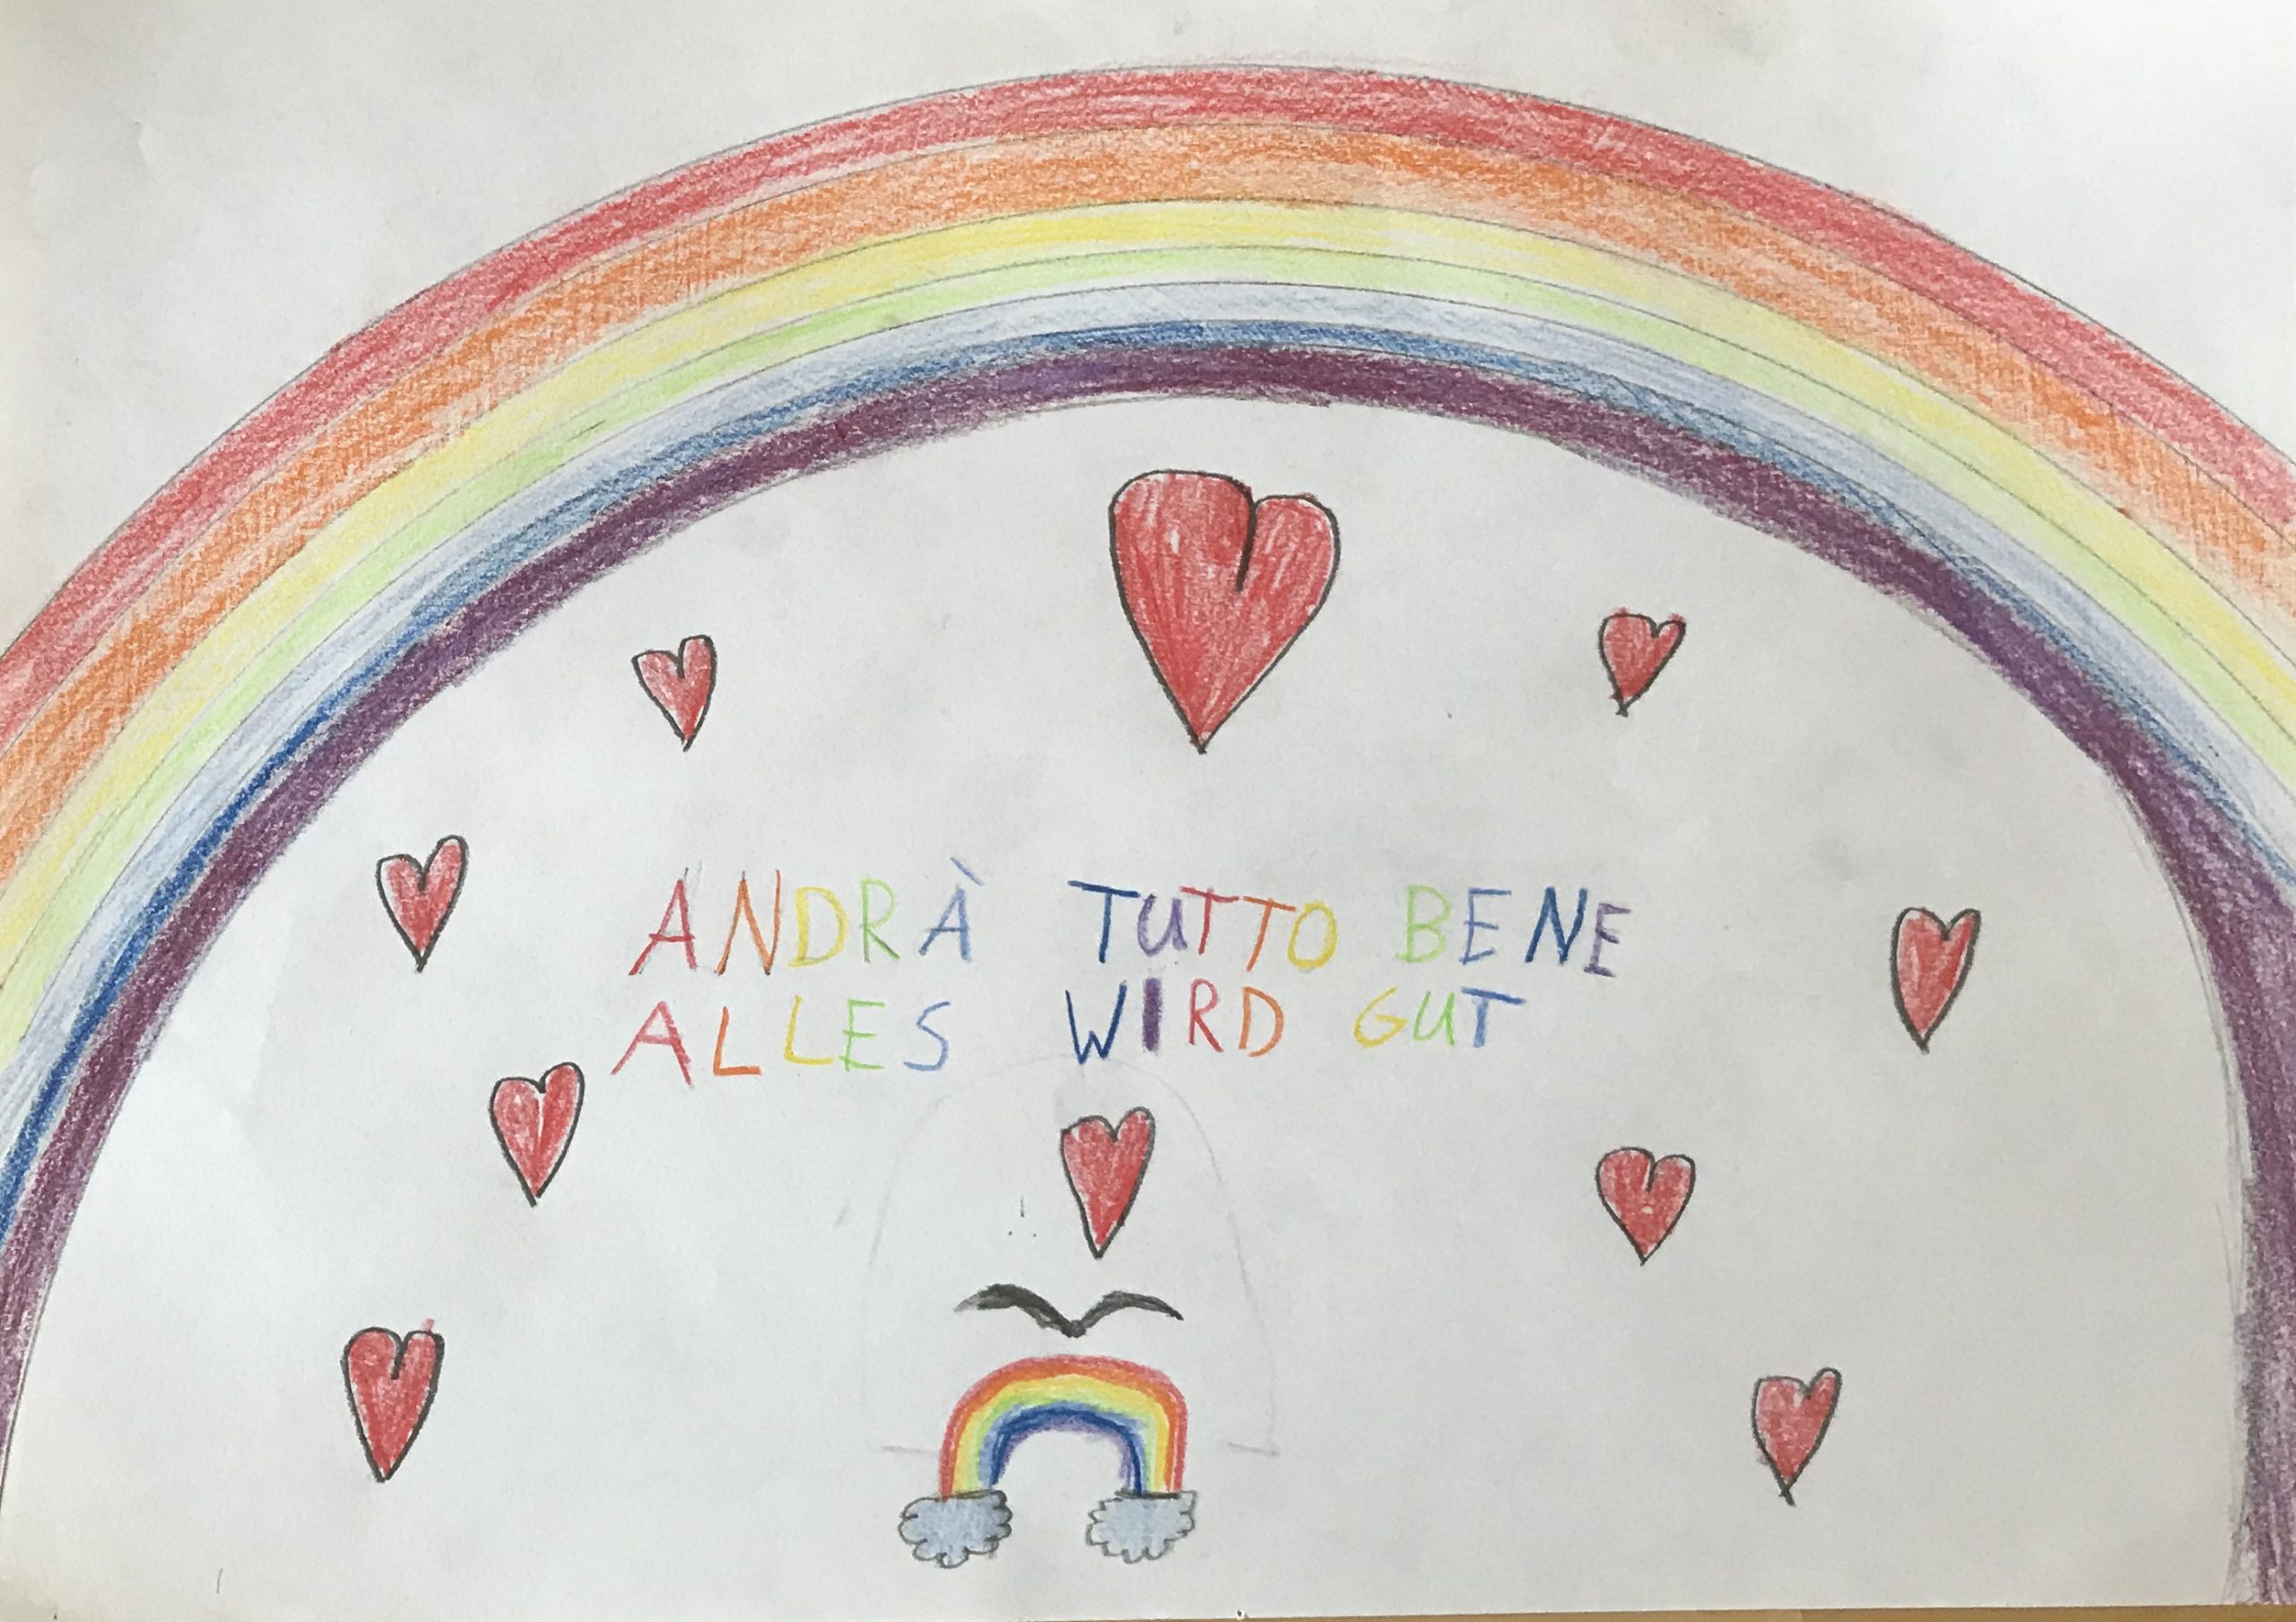 ANDRÀ TUTTO BENE
ALLES WIRD GUT